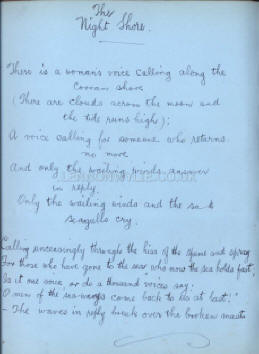 The
Night Shore.
There is a woman's voice calling along the
shore
(There are clouds across the moon and
the tide runs high);
A voice calling for someone who returns
no more
And only the wailing winds answer
in reply.
Only the wailing winds and the
seagulls cry.
Calling unceasingly through the hiss of the spume and spray
For those who have gone to the sea who now the sea holds fast,
Is it one voice, or do a thousand voices say:
O men of the come back to us at last;"
- The waves in reply break over the broken masts